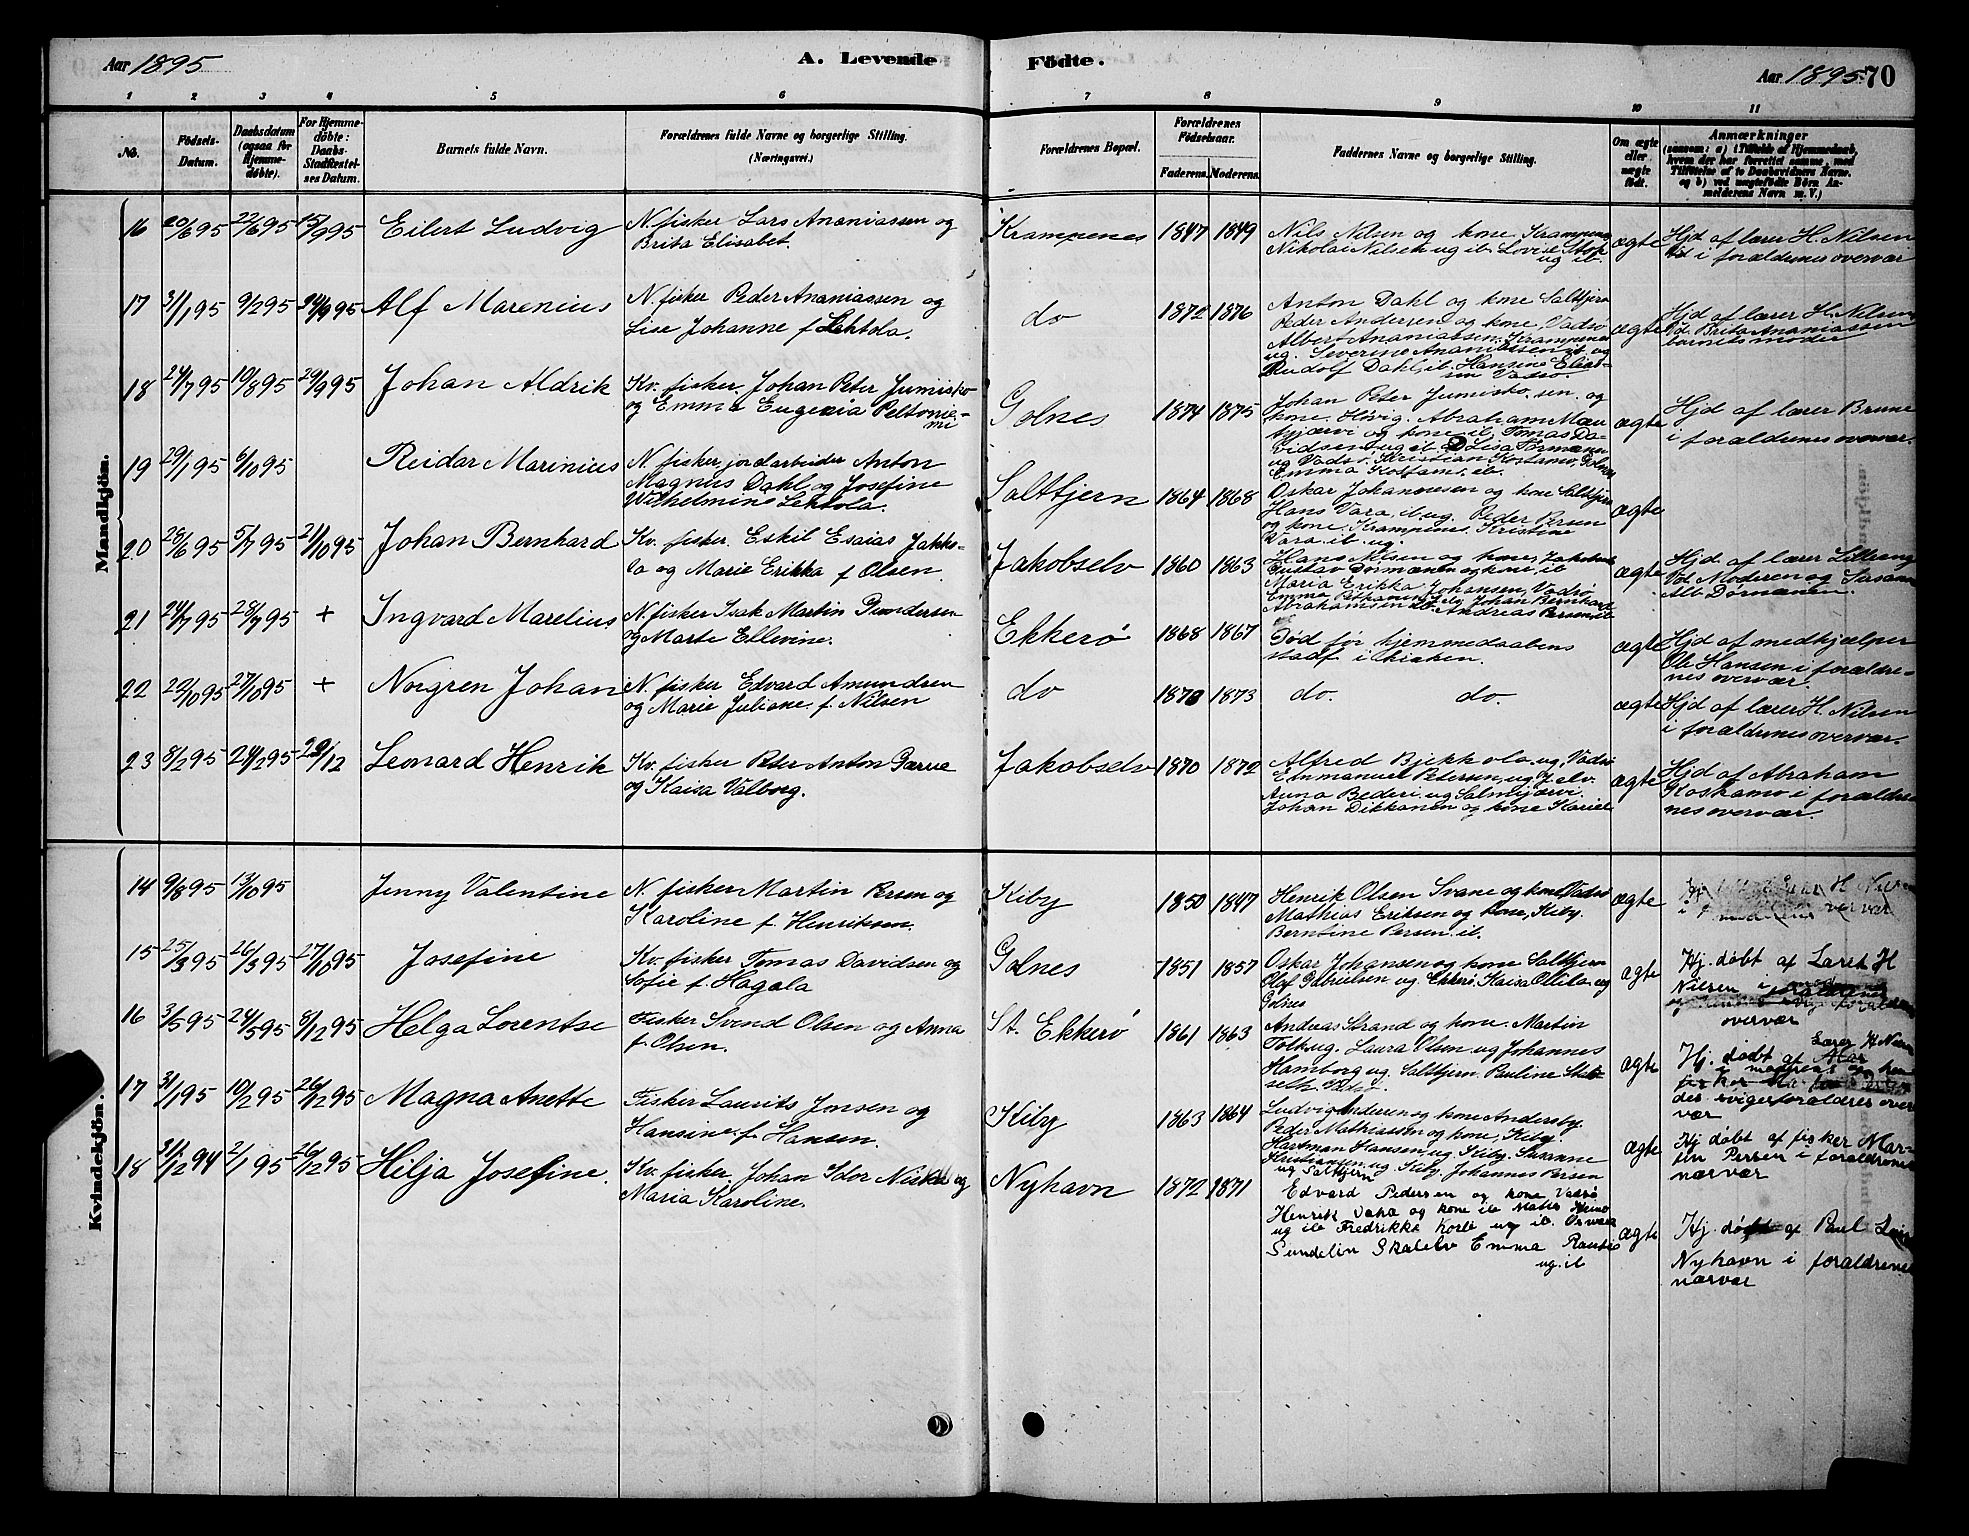 Aar 1895
A. Levende
Födte.
Aar 1895
70
1 2 3 4 5 6 7 8 9 10 11
No.
Födsels-
Datum.
Daabsdatum
(ogsaa for
Hjemme-
døbte).
For Hjemme-
døbte:
Daabs-
Stadfæstel-
ses Datum.
Barnets fulde Navn.
Forældrenes fulde Navne og borgerlige Stilling.
(Næringsvei.)
Forældrenes Bopæl.
Forældrenes
Födselsaar.
Faderens. Moderens.
Faddernes Navne og borgerlige Stilling.
Om ægte
eller
uægte
födt.
Anmærkninger
(saasom: a) i Tilfælde af Hjemmedaab,
hvem der har forrettet samme, med
Tilföielse af to Daabsvidners Navne.
og b) ved uægtefödte Börn An-
melderens Navn m. V.)
Mandkjön.
16 20/6 95 22/6 95 15/9 95 Eilert Ludvig
N. fisker Lars Ananiassen og
Brita Elisabet.
Krampenes 1847 1849
Nils Nilsen og kone Krampenes
Nikolai Nilsen ug ib. Lovise
ug ib.
ægte
Hjd af lærer H. Nilsen
i forældrenes overvær
17 31/1 95 9/2 95 24/9 95 Alf Marenius
N. fisker Peder Ananiassen og
Lise Johanne f. Lehtola.
do 1872 1876
Anton Dahl og kone Saltfjern
Peder Andersen og kone, Vadsø
Albert Ananiassen, Krampenes
ug. Severine Ananiassen ib. ug
Rudolf Dahl, ib. Hansine
Vadsø.
ægte
Hjd af lærer H. Nilsen
Vd. Brita Ananiassen
barnets moder
18 24/7 95 19/8 95 29/9 95 Johan Aldrik
Kv. fisker, Johan Peter Jumisko
og Emma Eugenia Peltonie-
mi
Golnes 1874 1875
Johan Peter Jumisko sen. og
kone. Abraham
og kone ib. Tomas Da-
vidsen, ug ib. Lisa
ug Vadsø. Kristian Kostamo, Golnes
Emma Kostamo, ib.
ægte
Hjd af lærer Brune
i forældrenes overvær.
19 29/1 95 6/10 95 Reidar Marinius
N. fisker, jordarbeider Anton
Magnus Dahl og Josefine
Wilhelmine Lehtola.
Saltfjern 1864 1868
Oskar Johannesen og kone Saltfjern
Hans Vara, ib ug. Peder Persen
og kone, Krampenes, Kristine
Vara ib. ug.
ægte
20 26/6 95 5/7 95 21/10 95 Johan Bernhard
Kv. fisker. Eskil Esaias Jakko-
la og Marie Erikka f. Olsen.
Jakobselv 1860 1863
Hans Nilsen og kone, Jakobselv
Gustav Dørmænen og kone, ib
Maria Erikka Johansen, Vadsø
Emma
Abrahamsen Andreas Persen ib
ægte
Hjd. af lærer
Vd. Moderen og Susan
Alb. Dørmænen.
21 24/7 95 28/7 95 + Ingvard Marelius
N. fisker Isak Martin Gundersen
og Marte Ellevine.
Ekkerø 1868 1867
Død før hjemmedaabens
stadf i kirken.
ægte
Hjd af medhjælper
Ole Hansen i forældre-
nes overvær.
22 22/10 95 27/10 95 + Norgren Johan
N. fisker Edvard Amundsen
og Marie Juliane f. Nilsen
do 1870 1873
do. do.
ægte
Hjd af lærer H. Nilsen
i forældrenes overvær.
23 8/2 95 24/2 95 29/12 Leonard Henrik
Kv. fisker Peter Anton Parve
og Kaisa Valborg.
Jakobselv 1870 1872
Alfred ug. Vadsø
Emmanuel Petersen, ug J. elv.
Anna ug Salmijærvi.
Johan Dikkanen og kone Kariel
ægte
Hjd af Abraham
Koskamo i forældre-
nes overvær.
Kvindekjön.
14 9/8 95 13/10 95 Jenny Valentine
N. fisker Martin Persen og
Karoline f. Henriksen.
Kiby 1850 1847
Henrik Olsen Svane og kone Vadsø
Mathias Eriksen og kone, Kiby.
Berntine Persen. ib.
ægte
15 25/3 95 26/3 95 27/10 95 Josefine
Kv. fisker Tomas Davidsen og
Sofie f. Hagala
Golnes 1851 1857
Oskar Johansen og kone Saltfjern
Olaf Gabrielsen ug. Ekkerø, Kaisa Ollila ug
Golnes
ægte
Hj. døbt af Lærer H
Nilsen i
overvær
16 3/5 95 24/5 95 8/12 95 Helga Lorentse
Fisker Svend Olsen og Anna
f. Olsen.
St. Ekkerø 1861 1863
Andreas Strand og kone. Martin
Tolk ug. Laura Olsen ug Johannes
Hamborg ug. Saltfjern. Pauline
Vadsø.
ægte
Lærer H Nilsen
Hj. døbt af
des svigerforældres over
vær
17 31/1 95 10/2 95 26/12 95 Magna Anette
Fisker Laurits Jonsen og
Hansine f. Hansen.
Kiby 1863 1864
Ludvig Andersen og kone Andersby
Peder Mathiassen og kone, Kiby.
Hartman Hansen, ug. Kiby. Susanne
Kristiansen, ug. Kiby, Johannes Persen
ug Saltfjern
ægte
Hj døbt af fisker Mar-
tin Persen i forældrenes
nærvær
18 31/12 94 2/1 95 26/12 95 Hilja Josefine.
Kv. fisker, Johan Idor og
Maria Karoline.
Nyhavn 1872 1871
Edvard Pedersen og kone Vadsø
Henrik Vaha og kone ib Matis
ug ib Fredrikke Korte ug ib.
Sundelin Skalelv Emma
ug. ib
ægte
Hj. døbt af Paul
Nyhavn i forældrenes
nærvær